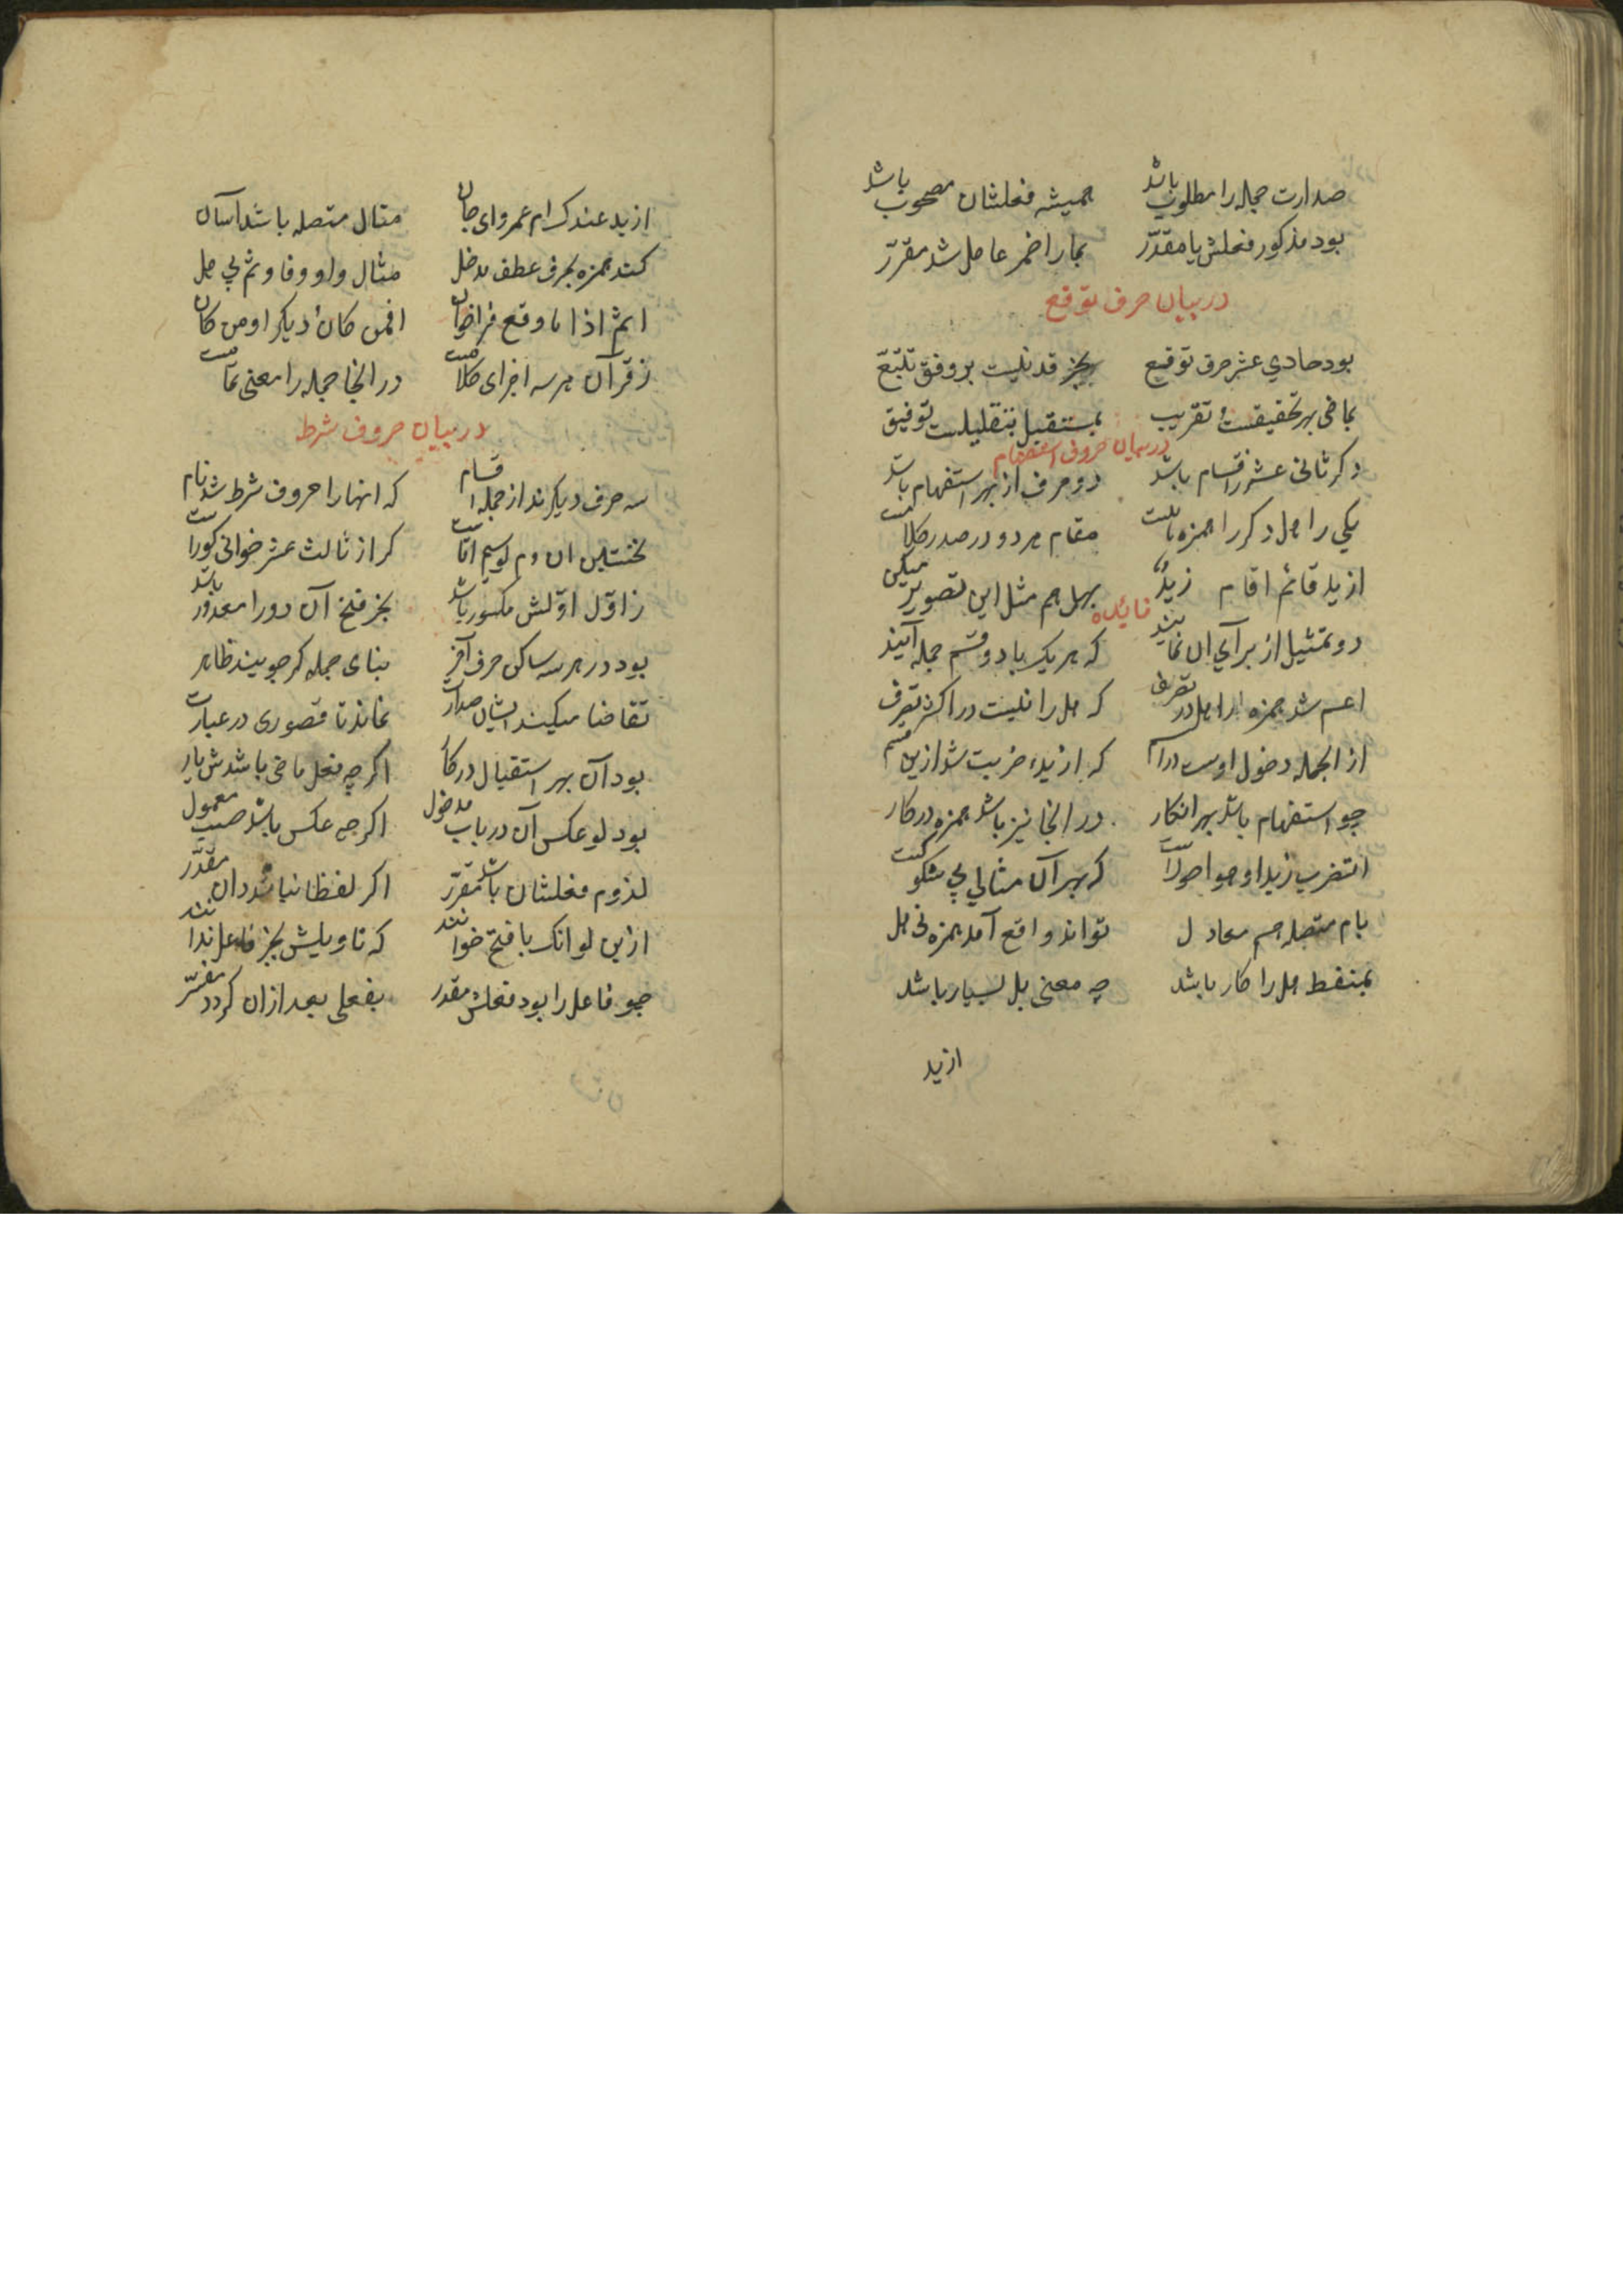 صدارت جمله را مطلوب باشد همیشه فعلشان مصحوب باشد
بود مذکور فعلش یا مقدّر بمار اضمر عامل شد مقرّر
در بیان حرف توقع
بود حادی عشر حرف توقیع بجز قد نیست بر وفق تتبّع
بماضی بهر تحقیقست و تقریب بمستقبل بتقلیلست توفیق
در بیان حروف استفهام
دکر ثانی عشر ز اقسام باشد دو حرف از بهر استفهام باشد
یکی را هل دکر را همزه مقام هر دو در صدر کلامست
ازید قائم اقام زیدٌ بهل هم مثل این تصویر میکن
فائده
دو تمثیل از برای ان نمایند که هر یک با دو قسم جمله آیند
اعم شد همزه از هل در تصرف که هل را نیست در اکثر تصرف
از الجمله دخول اوست در اسم که ازیدا ضربت شد ازین قسم
چو استفهام باشد بهر انکار در انجا نیز باشد همزه در کار
اتضرب زیدا و هو اخوک است که بهر آن مثالی بی شکوکست
بام متصله هم معادل تواند واقع آمد همزه نی هل
بمنفط هل را کار باشد چه معنی بل بسیار باشد
ازید
ازید عندک ام عمرو ای جان مثال متصله باشد آسان
کند همزه بحرف عطف مدخل مثال واو و فا و ثم بی هل
اثم اذا ما وقع فراخوان افمن کان دیکر اومن کان
ز قرآن هر سه اجزای کلامست در انجا جمله را معنی تمامست
در بیان حروف شرط
سه حرف دیکرند از جمله اقسام که انها را حروف شرط شد نام
نخستین ان دوم لو سیم امّاست کر از ثالث عشر خوانی کوراست
ز اوّل اوّلش مکسور باشد بجز فتح آن دو را معذور باشد
بود در هر سه ساکن حرف آخر بنای جمله کر جویند ظاهر
تقاضا میکیند ایشان صدارت نماند تا قصوری در عبارت
بود آن بهر استقبال در کار اکر چه فعل ماضی باشدش یار
بود لو عکس آن در باب مدخول اکر چه عکس باشد معمول
لزوم فعلشان باشد مقرّر اکر لفظا نباشد دان مقدّر
ازین لو انک با فتح خوانند که تاویلش بجز فاعل ندانند
چو فاعل را بود فعلش مقدر بفعلی بعد ازان کردد مفسّر